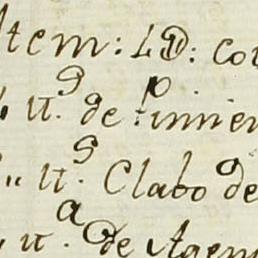 Item: LD: cou
" tt.s de Pimien
" tt.s Clabo de
" tt.a de Agen